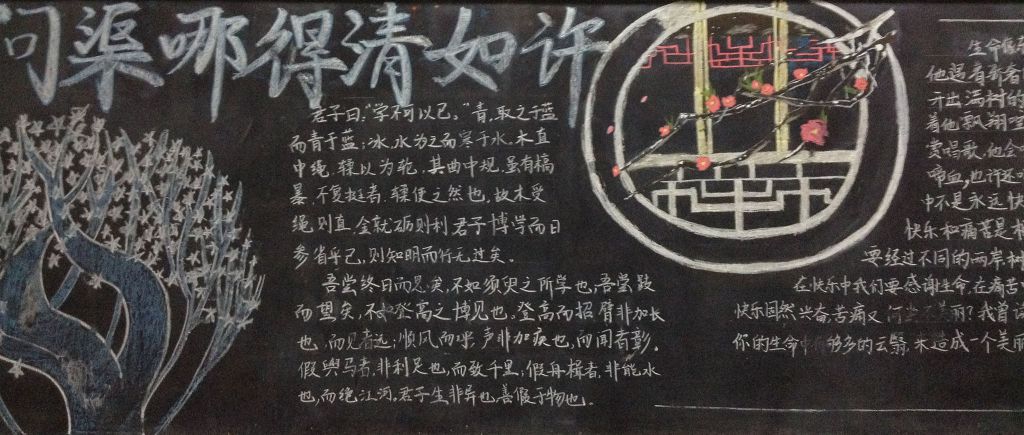 问渠哪得清如许
君子曰:“学不可以已。”青,取之于蓝
而青于蓝;冰,水为之而寒于水。木直
中绳,輮以为轮,其曲中规,虽有槁
暴,不复挺者,輮使之然也,故木受
绳则直,金就砺则利,君子博学而日
参省乎己,则知明而行无过矣。
吾尝终日而思矣,不如须臾之所学也,吾尝跂
而望矣,不如登高之博见也。登高而招,臂非加长
也,而见者远;顺风而呼,声非加疾也,而闻者彰。
假舆马者,非利足也,而致千里;假舟楫者,非能水
也,而绝江河,君子生非异也,善假于物也。
生命
他遇着
开出满树的
着他飘翔
赏唱歌,他会
啼血,也许还
中不是永远快
快乐和痛苦是相
要经过不同的两岸树
在快乐中我们要感谢生命,在痛苦
快乐固然兴奋,苦痛又何尝不美丽?我曾读
你的生命中 够多的云翳,来造成一个美丽